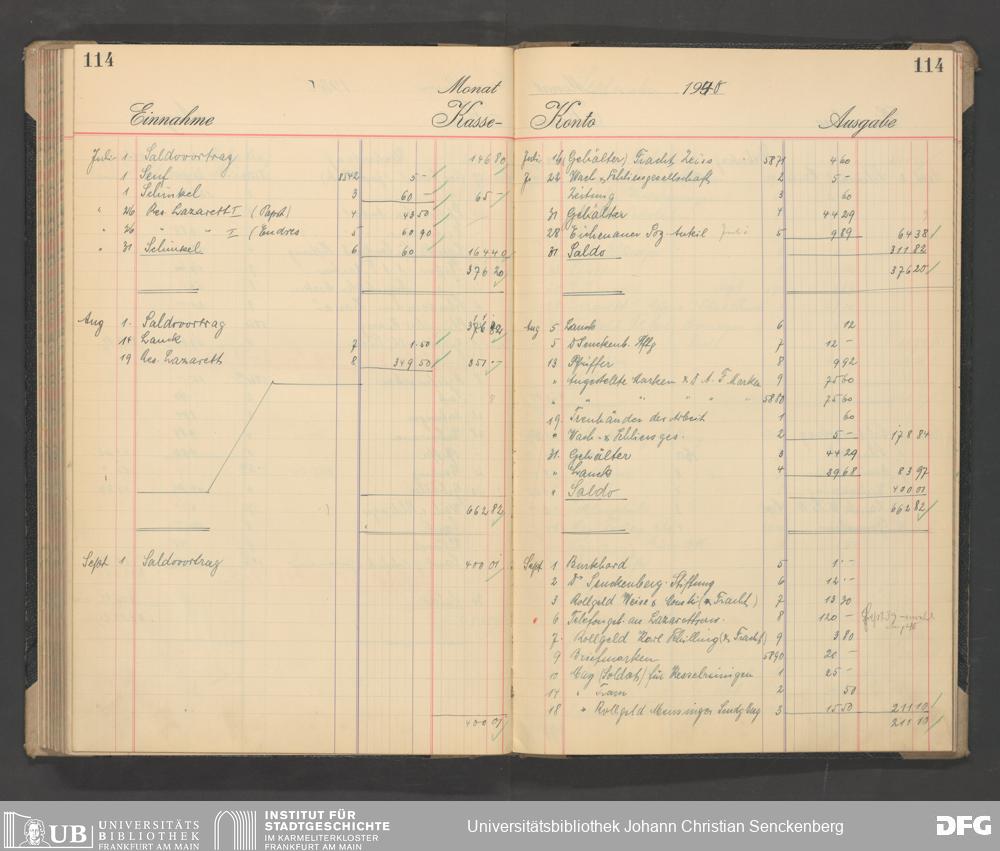 114
Monat
Einnahme
Kasse-
Juli 1. Saldovortrag 146 80
1 Senf 8542 5 -
1 Schinkel 3 60 - 65 -
" 26 Res. Lazarett I 4 43 50
" 26 " " I (Endres 5 60 90
" 31 Schinkel 6 60 164 40
376 20
Aug 1. Saldovortrag
14 Lanck 7 1.50
19 Res. Lazarett 8 349 50 351 -
662 82
Sept 1 Saldovortrag 400 01
400 01
114
1940
Konto
Ausgabe
Juli 16 Gehälter) Fracht Zeiss 5871 4 60
22 Wach- u. Schliessgesellschaft 2 5 -
Zeitung 3 60
31 Gehälter 4 44 29
28 Eichenauer Soz. Anteil Juli 5 9 89 64 38
31 Saldo 311 82
376 20
Aug 5 Lanck 6 12
5 D Senckenb. Stftg 7 12 -
13 Pfeiffer 8 9 92
" Angestellte Marken 9 75 60
" " " " " " 5880 75 60
19. Treuhänder der Arbeit 1 60
" Wach- u Schliessges. 2 5 - 178 84
31. Gehälter 3 44 29
" Lanck 4 39 68 83 97
" Saldo 400 01
662 82
Sept 1 Burkhard 5 1 -
2 Dr Senckenberg. Stiftung 6 12 -
3 Rollgeld Weise & (u. Fracht) 7 13 30
6 Telefongeb. an Lazarett 8 120 -
7. Rollgeld Karl Schilling (u. Fracht) 9 3 80
9 Briefmarken 5890 20 -
10 Aug (Soldat) für Kesselreinigen 1 25 -
14 " Tram 2 50
18 " Rollgeld Mensinger 3 15 50 211 10
211 10
UB UNIVERSITÄTS
BIBLIOTHEK
FRANKFURT AM MAIN
INSTITUT FÜR
STADTGESCHICHTE
IM KARMELITERKLOSTER
FRANKFURT AM MAIN
Universitätsbibliothek Johann Christian Senckenberg
DFG